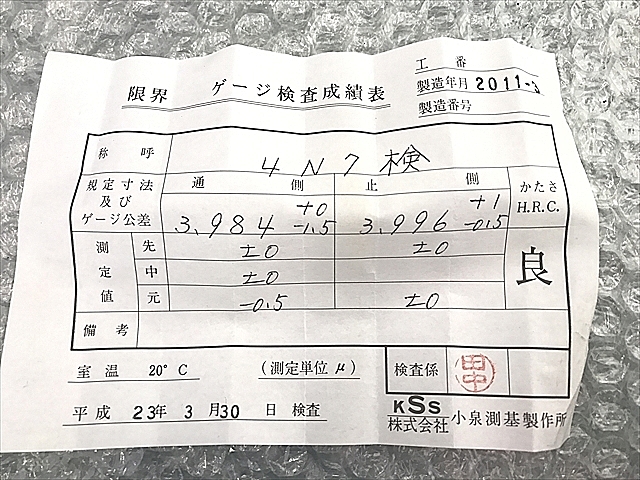 限界 ゲージ検査成績表
工番
製造年月 2011-3
製造番号
称呼 4N7 検
規定寸法及びゲージ公差 通側 3.984 +0 -1.5 止側 3.996 +1 -0.5 かたさ H.R.C.
測定値 先 ±0 ±0 良
中 ±0
元 -0.5 ±0
備考
室温 20°C (測定単位μ) 検査係 田中
平成 23年 3月30日 検査
KSS
株式会社 小泉測基製作所